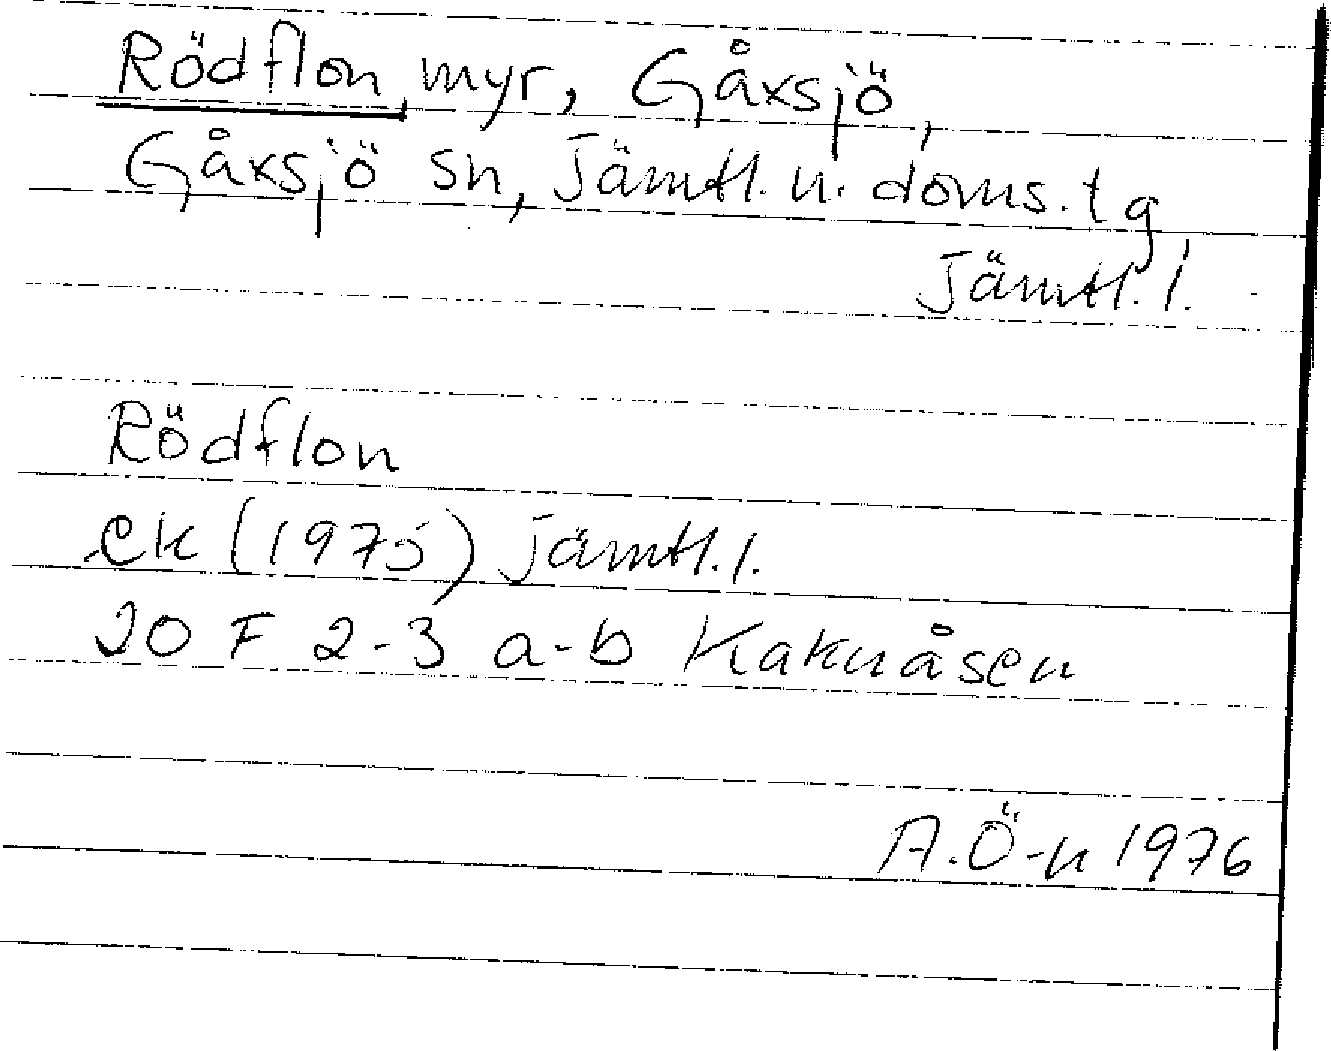 Rödflon, myr, Gåxsjö,
Gåxsjö sn, Jämtl. n. doms. tg
Jämtl. l.
Rödflon
ek (1975) Jämtl. l.
20 F 2-3 a-b Kaknåsen
A. Ö-n 1976